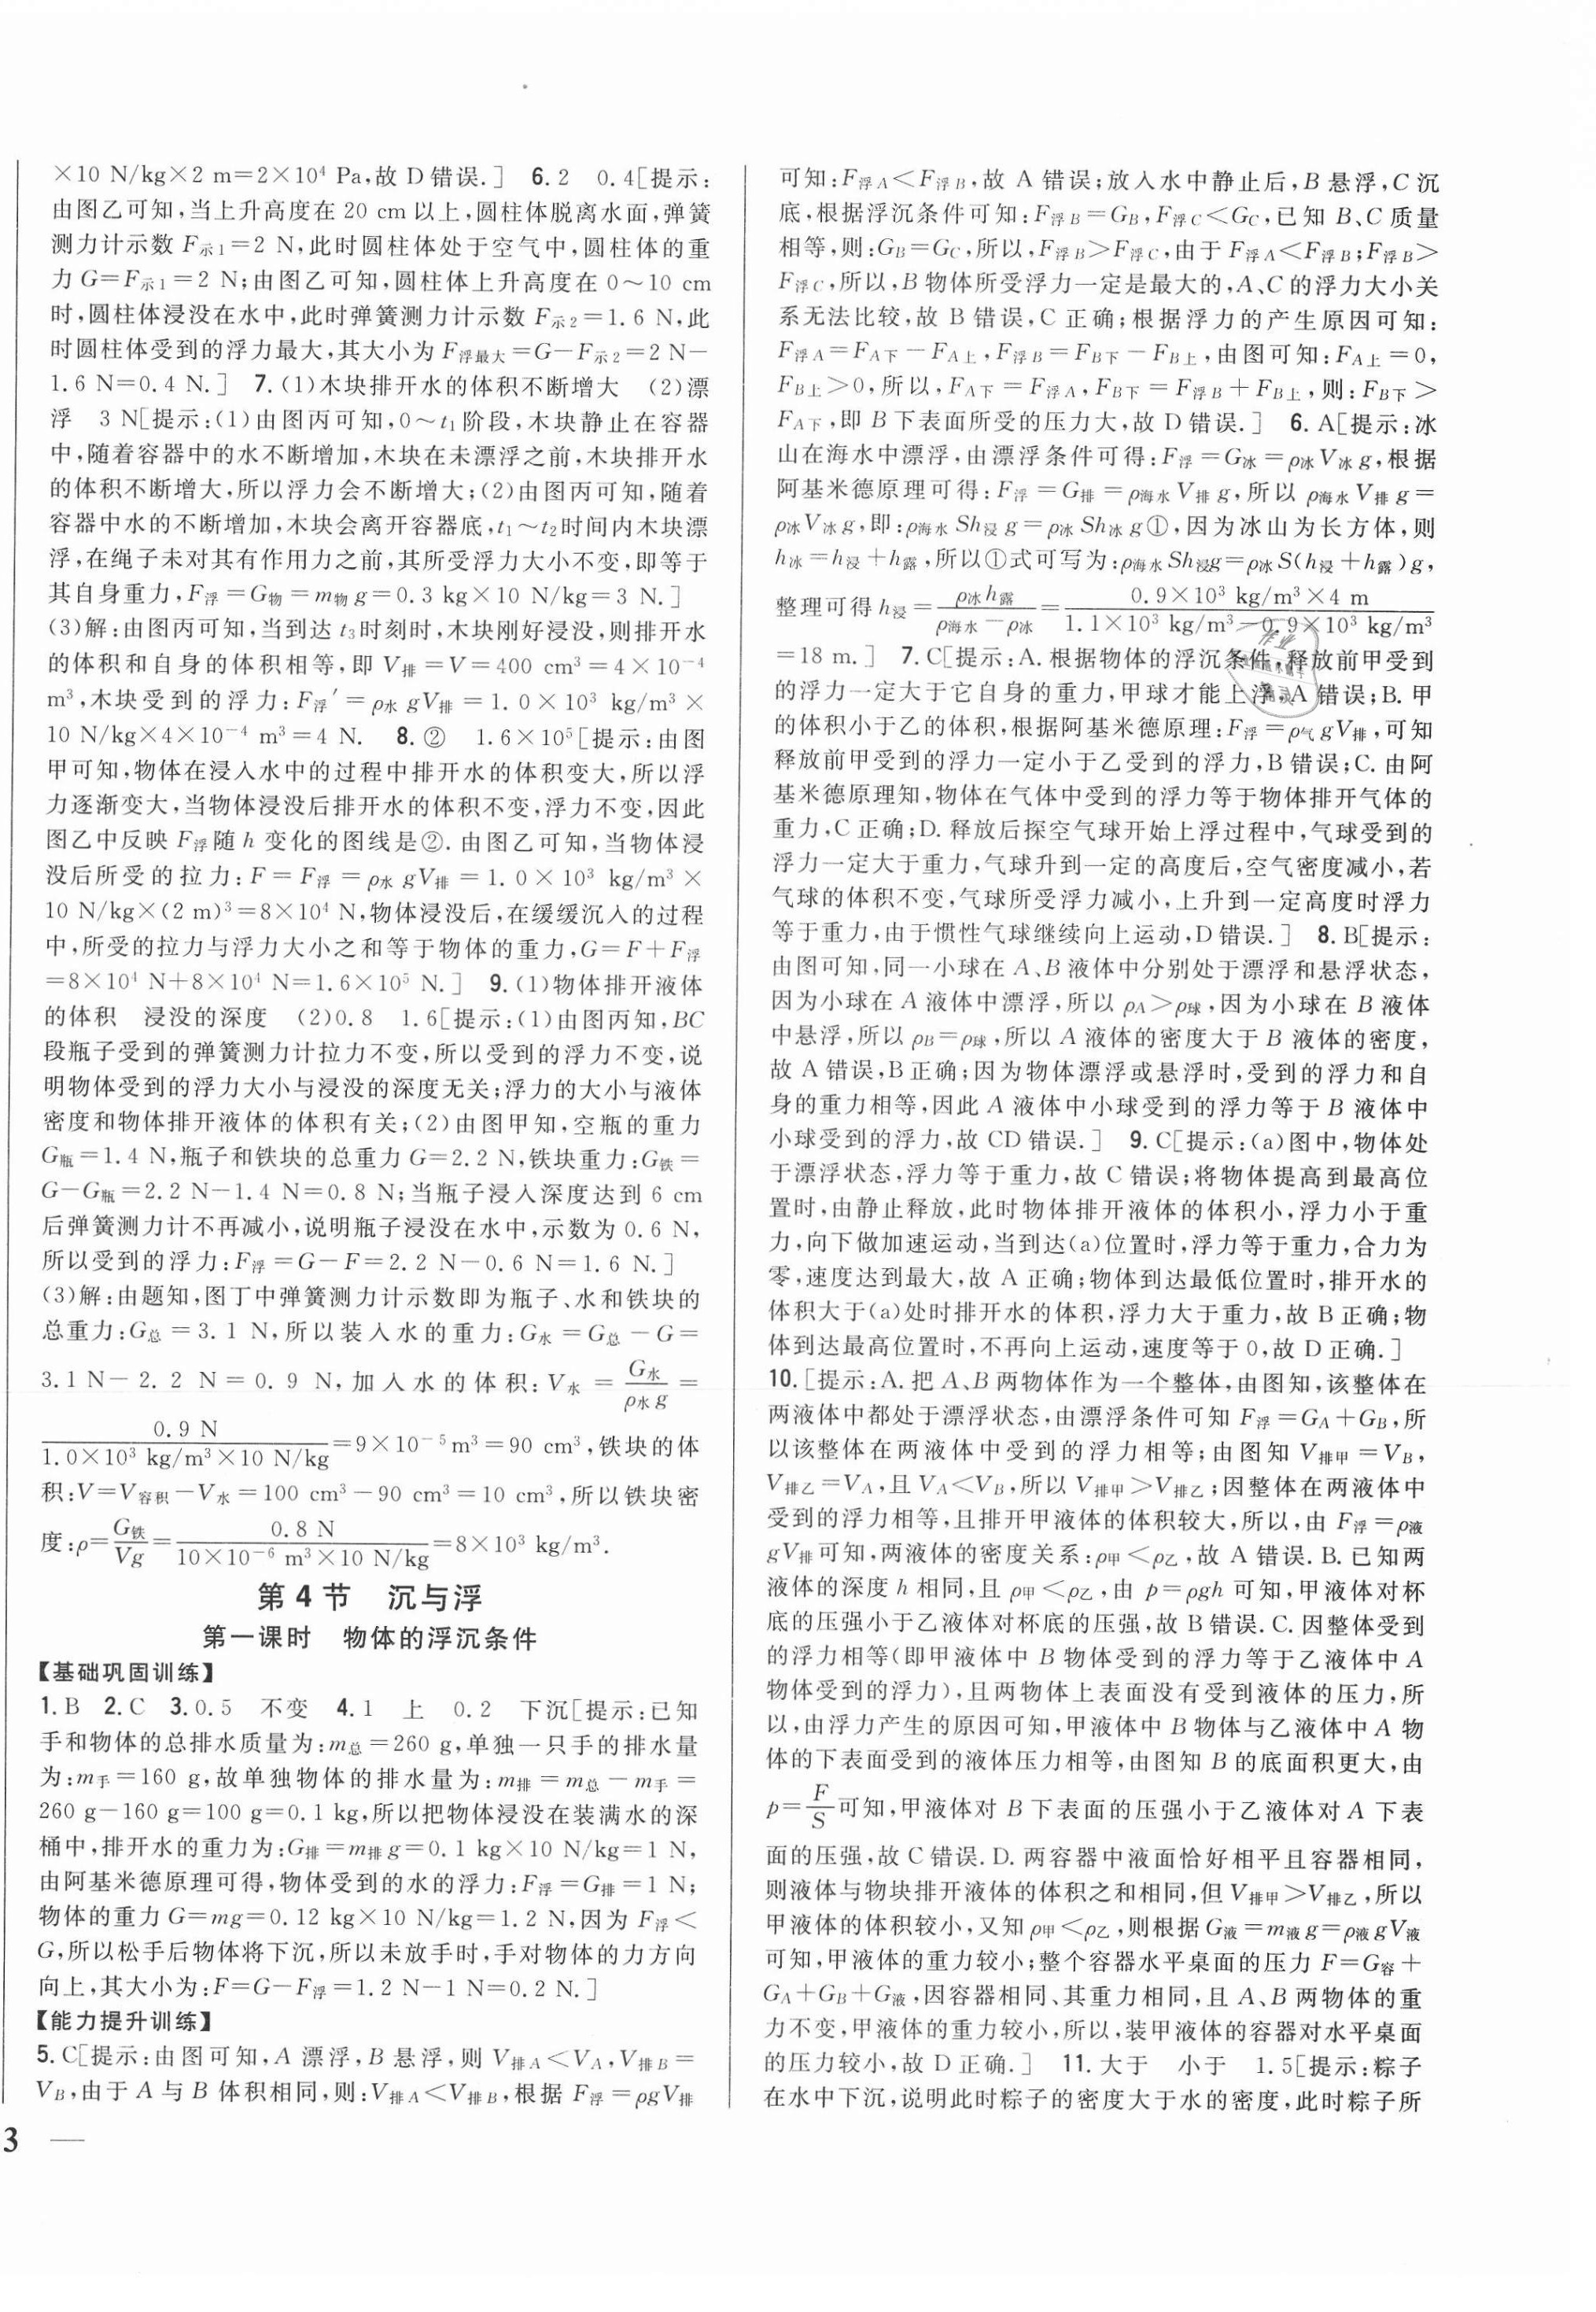 ×10 N/kg×2 m=2×10⁴ Pa,故 D 错误.] 6.2 0.4[提示:
由图乙可知,当上升高度在 20 cm 以上,圆柱体脱离水面,弹簧
测力计示数 F示1=2 N,此时圆柱体处于空气中,圆柱体的重
力 G=F示1=2 N;由图乙可知,圆柱体上升高度在 0～10 cm
时,圆柱体浸没在水中,此时弹簧测力计示数 F示2=1.6 N,此
时圆柱体受到的浮力最大,其大小为 F浮最大=G-F示2=2 N-
1.6 N=0.4 N.] 7.(1)木块排开水的体积不断增大 (2)漂
浮 3 N[提示:(1)由图丙可知,0～t₁阶段,木块静止在容器
中,随着容器中的水不断增加,木块在未漂浮之前,木块排开水
的体积不断增大,所以浮力会不断增大;(2)由图丙可知,随着
容器中水的不断增加,木块会离开容器底,t₁～t₂时间内木块漂
浮,在绳子未对其有作用力之前,其所受浮力大小不变,即等于
其自身重力,F浮=G物=m物g=0.3 kg×10 N/kg=3 N.]
(3)解:由图丙可知,当到达 t₃时刻时,木块刚好浸没,则排开水
的体积和自身的体积相等,即 V排=V=400 cm³=4×10⁻⁴
m³,木块受到的浮力:F浮′=ρ水gV排=1.0×10³ kg/m³×
10 N/kg×4×10⁻⁴ m³=4 N. 8.② 1.6×10⁵[提示:由图
甲可知,物体在浸入水中的过程中排开水的体积变大,所以浮
力逐渐变大,当物体浸没后排开水的体积不变,浮力不变,因此
图乙中反映 F浮随 h 变化的图线是②.由图乙可知,当物体浸
没后所受的拉力:F=F浮=ρ水gV排=1.0×10³ kg/m³×
10 N/kg×(2 m)³=8×10⁴ N,物体浸没后,在缓缓沉入的过程
中,所受的拉力与浮力大小之和等于物体的重力,G=F+F浮
=8×10⁴ N+8×10⁴ N=1.6×10⁵ N.] 9.(1)物体排开液体
的体积 浸没的深度 (2)0.8 1.6[提示:(1)由图丙知,BC
段瓶子受到的弹簧测力计拉力不变,所以受到的浮力不变,说
明物体受到的浮力大小与浸没的深度无关;浮力的大小与液体
密度和物体排开液体的体积有关;(2)由图甲知,空瓶的重力
G瓶=1.4 N,瓶子和铁块的总重力 G=2.2 N,铁块重力:G铁=
G-G瓶=2.2 N-1.4 N=0.8 N;当瓶子浸入深度达到 6 cm
后弹簧测力计不再减小,说明瓶子浸没在水中,示数为 0.6 N,
所以受到的浮力:F浮=G-F=2.2 N-0.6 N=1.6 N.]
(3)解:由题知,图丁中弹簧测力计示数即为瓶子、水和铁块的
总重力:G总=3.1 N,所以装入水的重力:G水=G总-G=
3.1 N-2.2 N=0.9 N,加入水的体积:V水=G水/ρ水g=
0.9 N/1.0×10³ kg/m³×10 N/kg=9×10⁻⁵m³=90 cm³,铁块的体
积:V=V容积-V水=100 cm³-90 cm³=10 cm³,所以铁块密
度:ρ=G铁/Vg=0.8 N/10×10⁻⁶ m³×10 N/kg=8×10³ kg/m³.
第 4 节 沉与浮
第一课时 物体的浮沉条件
【基础巩固训练】
1.B 2.C 3.0.5 不变 4.1 上 0.2 下沉[提示:已知
手和物体的总排水质量为:m总=260 g,单独一只手的排水量
为:m手=160 g,故单独物体的排水量为:m排=m总-m手=
260 g-160 g=100 g=0.1 kg,所以把物体浸没在装满水的深
桶中,排开水的重力为:G排=m排g=0.1 kg×10 N/kg=1 N,
由阿基米德原理可得,物体受到的水的浮力:F浮=G排=1 N;
物体的重力 G=mg=0.12 kg×10 N/kg=1.2 N,因为 F浮<
G,所以松手后物体将下沉,所以未放手时,手对物体的力方向
向上,其大小为:F=G-F浮=1.2 N-1 N=0.2 N.]
【能力提升训练】
5.C[提示:由图可知,A 漂浮,B 悬浮,则 V排A<VA,V排B=
VB,由于 A 与 B 体积相同,则:V排A<V排B,根据 F浮=ρgV排
3 —
可知:F浮A<F浮B,故 A 错误;放入水中静止后,B 悬浮,C 沉
底,根据浮沉条件可知:F浮B=GB,F浮C<GC,已知 B、C 质量
相等,则:GB=GC,所以,F浮B>F浮C,由于 F浮A<F浮B;F浮B>
F浮C,所以,B 物体所受浮力一定是最大的,A、C 的浮力大小关
系无法比较,故 B 错误,C 正确;根据浮力的产生原因可知:
F浮A=FA下-FA上,F浮B=FB下-FB上,由图可知:FA上=0,
FB上>0,所以,FA下=F浮A,FB下=F浮B+FB上,则:FB下>
FA下,即 B 下表面所受的压力大,故 D 错误.] 6.A[提示:冰
山在海水中漂浮,由漂浮条件可得:F浮=G冰=ρ冰V冰g,根据
阿基米德原理可得:F浮=G排=ρ海水V排g,所以 ρ海水V排g=
ρ冰V冰g,即:ρ海水Sh浸g=ρ冰Sh冰g①,因为冰山为长方体,则
h冰=h浸+h露,所以①式可写为:ρ海水Sh浸g=ρ冰S(h浸+h露)g,
整理可得 h浸=ρ冰h露/ρ海水-ρ冰=0.9×10³ kg/m³×4 m/1.1×10³ kg/m³-0.9×10³ kg/m³
=18 m.] 7.C[提示:A.根据物体的浮沉条件,释放前甲受到
的浮力一定大于它自身的重力,甲球才能上浮,A 错误;B.甲
的体积小于乙的体积,根据阿基米德原理:F浮=ρ气gV排,可知
释放前甲受到的浮力一定小于乙受到的浮力,B 错误;C.由阿
基米德原理知,物体在气体中受到的浮力等于物体排开气体的
重力,C 正确;D.释放后探空气球开始上浮过程中,气球受到的
浮力一定大于重力,气球升到一定的高度后,空气密度减小,若
气球的体积不变,气球所受浮力减小,上升到一定高度时浮力
等于重力,由于惯性气球继续向上运动,D 错误.] 8.B[提示:
由图可知,同一小球在 A、B 液体中分别处于漂浮和悬浮状态,
因为小球在 A 液体中漂浮,所以 ρA>ρ球,因为小球在 B 液体
中悬浮,所以 ρB=ρ球,所以 A 液体的密度大于 B 液体的密度,
故 A 错误,B 正确;因为物体漂浮或悬浮时,受到的浮力和自
身的重力相等,因此 A 液体中小球受到的浮力等于 B 液体中
小球受到的浮力,故 CD 错误.] 9.C[提示:(a)图中,物体处
于漂浮状态,浮力等于重力,故 C 错误;将物体提高到最高位
置时,由静止释放,此时物体排开液体的体积小,浮力小于重
力,向下做加速运动,当到达(a)位置时,浮力等于重力,合力为
零,速度达到最大,故 A 正确;物体到达最低位置时,排开水的
体积大于(a)处时排开水的体积,浮力大于重力,故 B 正确;物
体到达最高位置时,不再向上运动,速度等于 0,故 D 正确.]
10.[提示:A.把 A、B 两物体作为一个整体,由图知,该整体在
两液体中都处于漂浮状态,由漂浮条件可知 F浮=GA+GB,所
以该整体在两液体中受到的浮力相等;由图知 V排甲=VB,
V排乙=VA,且 VA<VB,所以 V排甲>V排乙;因整体在两液体中
受到的浮力相等,且排开甲液体的体积较大,所以,由 F浮=ρ液
gV排可知,两液体的密度关系:ρ甲<ρ乙,故 A 错误.B.已知两
液体的深度 h 相同,且 ρ甲<ρ乙,由 p=ρgh 可知,甲液体对杯
底的压强小于乙液体对杯底的压强,故 B 错误.C.因整体受到
的浮力相等(即甲液体中 B 物体受到的浮力等于乙液体中 A
物体受到的浮力),且两物体上表面没有受到液体的压力,所
以,由浮力产生的原因可知,甲液体中 B 物体与乙液体中 A 物
体的下表面受到的液体压力相等,由图知 B 的底面积更大,由
p=F/S可知,甲液体对 B 下表面的压强小于乙液体对 A 下表
面的压强,故 C 错误.D.两容器中液面恰好相平且容器相同,
则液体与物块排开液体的体积之和相同,但 V排甲>V排乙,所以
甲液体的体积较小,又知 ρ甲<ρ乙,则根据 G液=m液g=ρ液gV液
可知,甲液体的重力较小;整个容器水平桌面的压力 F=G容+
GA+GB+G液,因容器相同、其重力相同,且 A、B 两物体的重
力不变,甲液体的重力较小,所以,装甲液体的容器对水平桌面
的压力较小,故 D 正确.] 11.大于 小于 1.5[提示:粽子
在水中下沉,说明此时粽子的密度大于水的密度,此时粽子所